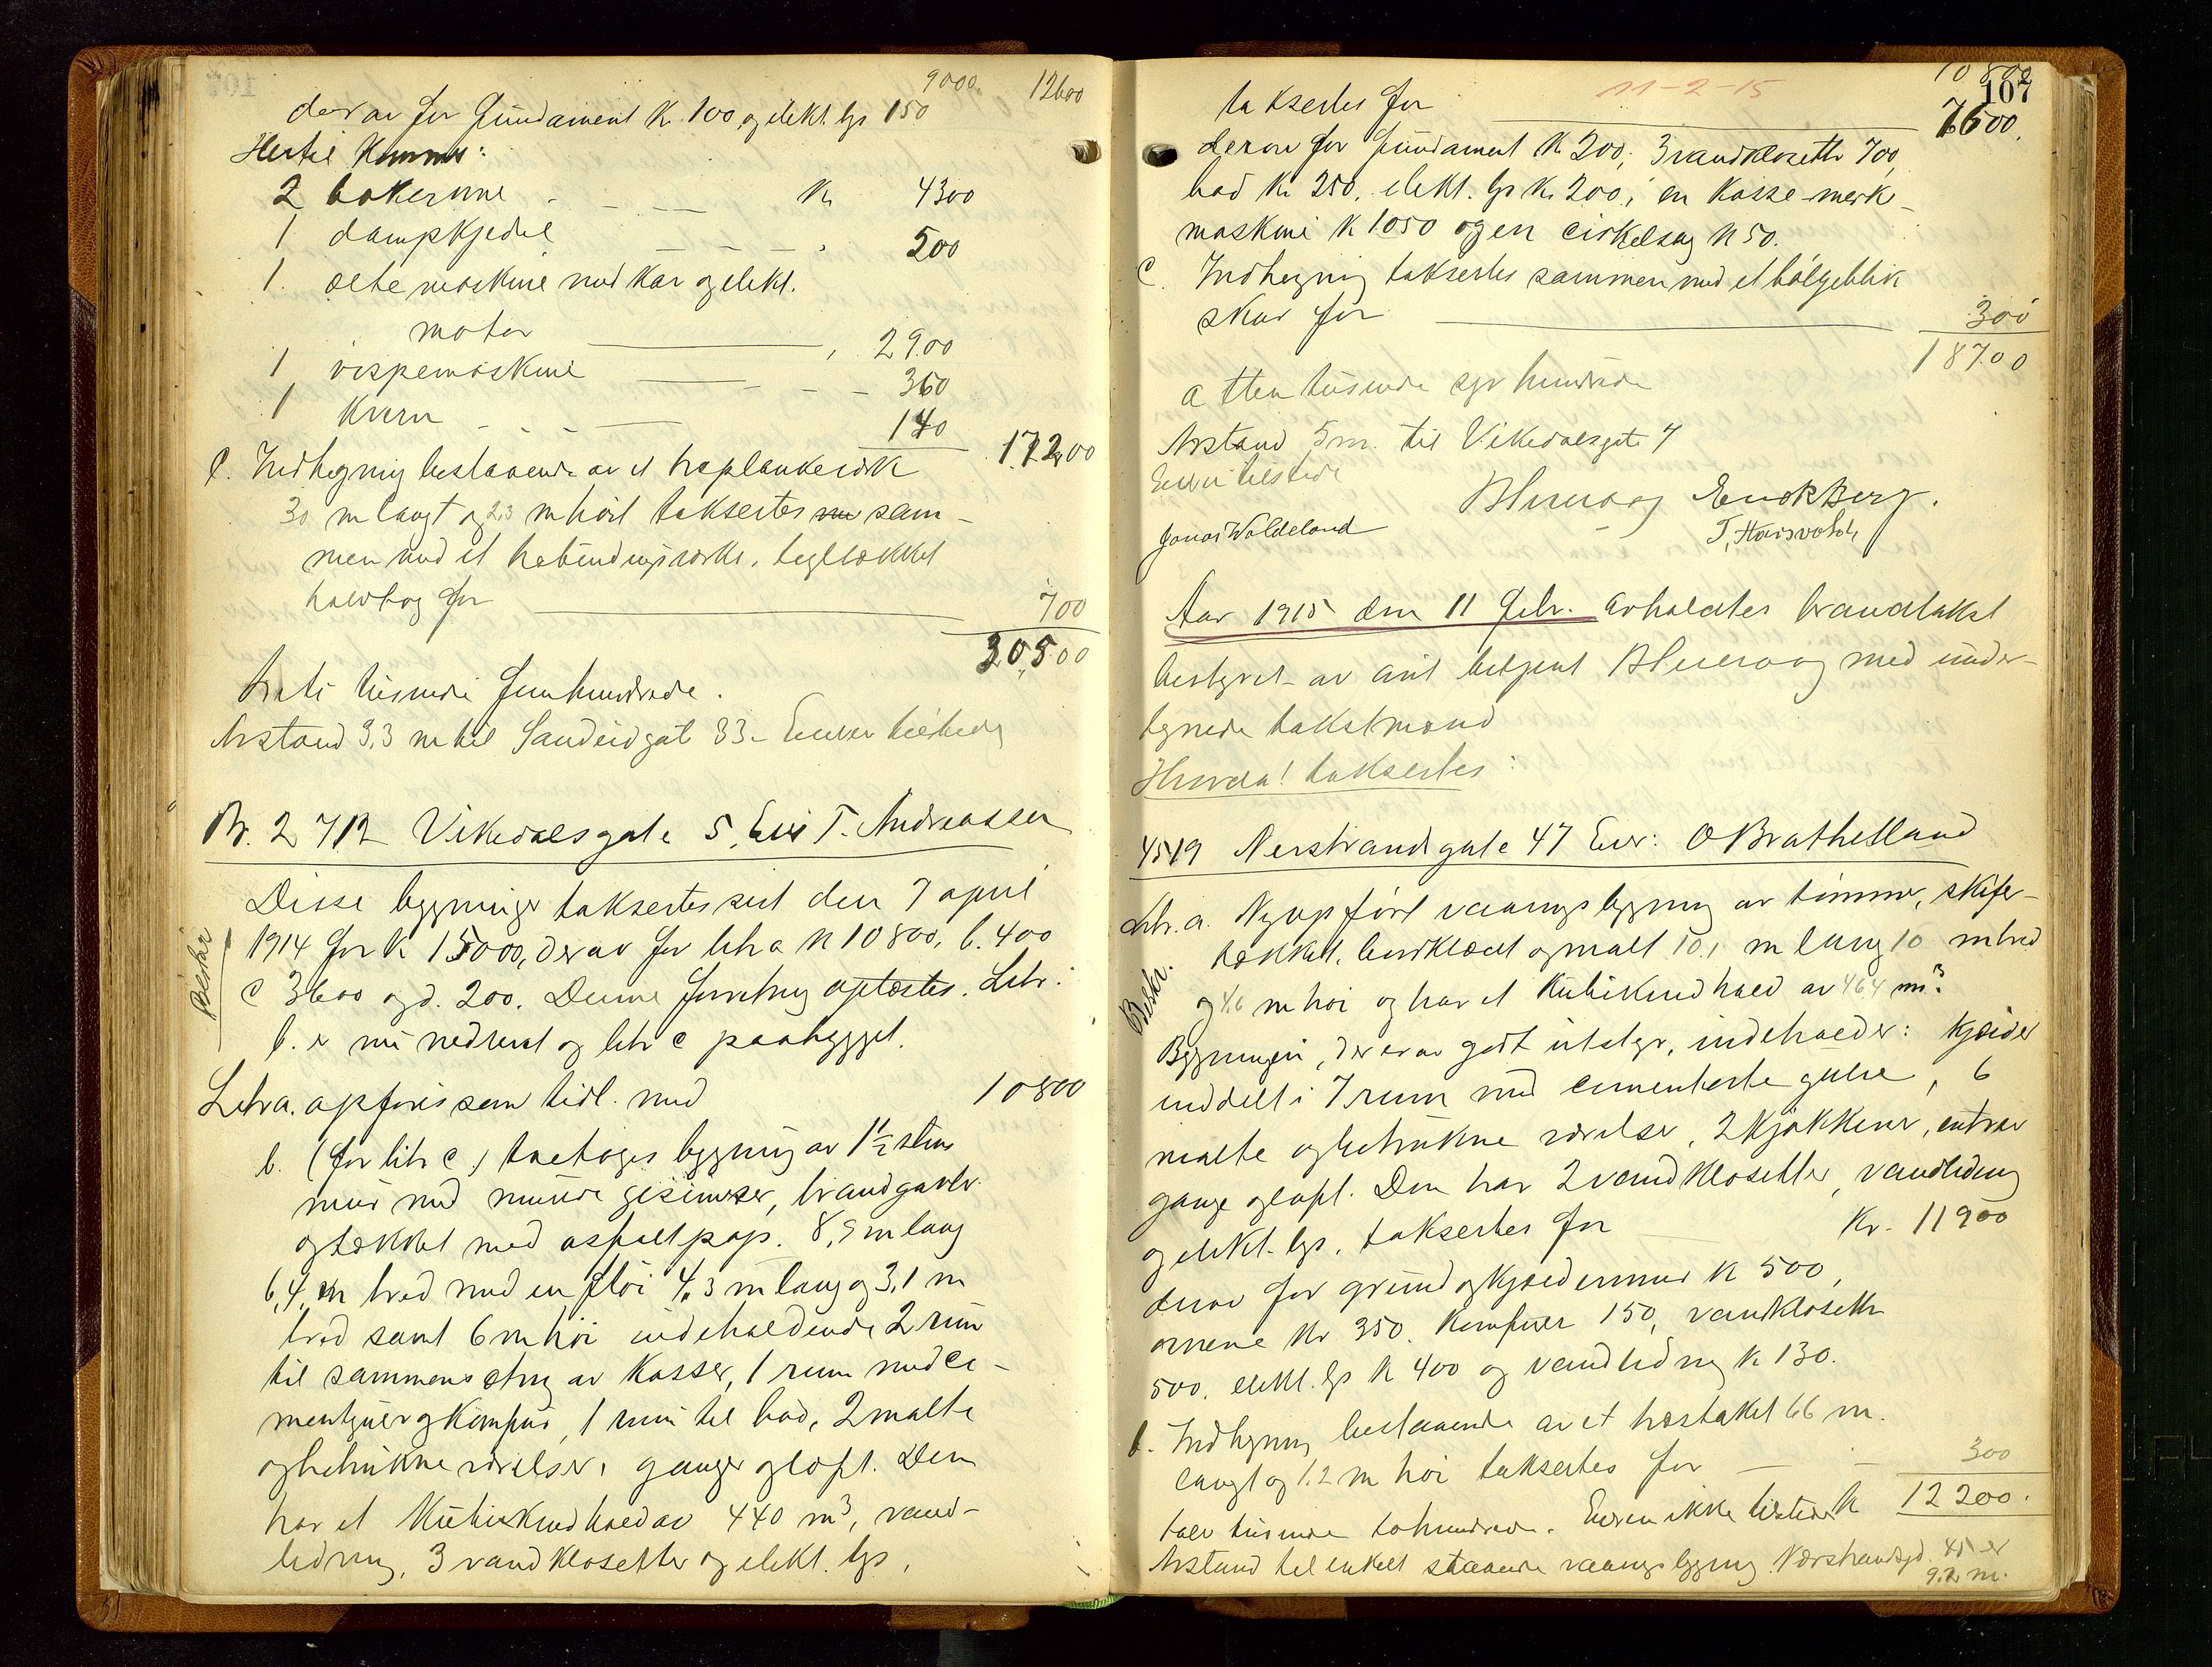 9000 12600
derav for fundament Kr. 100, og elekt. lys 150
Hertil kommer:
2 bakerovne Kr 4300
1 dampkjedel 500
1 eltemaskine med kar og elekt.
motor 2900
1 vispemaskine 360
1 kvern 140
17200
C. Indhegning bestaaende av et træplankeværk
30 m langt og 2,3 m høit taksertes sam-
men med et træbindingsverks, tegltækket
halvtag for 700
30500
Treti tusinde femhundrede.
Avstand 9,3 m til Sandeidgate 33 - Eieren tilstede
Nr. 2712 Vikedalsgate 5, Eier T. Andreassen
Beskr.
Disse bygninger taksertes sist den 7 april
1914 for Kr 15000, derav for litr a Kr 10800, b. 400
c 3600 og d. 200. Denne forretning opløstes. Litr.
b. er nu nedrevet og litr c paabygget.
Litr a. opføres som tidl. med 10800
b. (før litr c.) toetages bygning av 1½ stens
mur med murede gesimser, brandgavler
og tækket med asfaltpap. 8,5 m lang
6,4 m bred med en fløi 4,3 m lang og 3,1 m
bred samt 6 m høi indeholdende 2 rum
til sammensætning av kasser, 1 rum med ce-
mentgulv og komfur, 1 rum til bad, 2 malte
og betrukne værelser, ganger og loft. Den
har et kubikindhold av 440 m³, vand-
ledning, 3 vandklosetter og elekt. lys,
11-2-15
10800
107
taksertes for 7600
derav for fundament Kr 200, 3 vandklosetter 700,
bad Kr 250, elekt. lys Kr. 200, en kasse-merke-
maskine Kr 1050 og en cirkelsag Kr 50.
C. Indhegning taksertes sammen med et bølgeblik
skur for 300
18700
atten tusinde syv hundrede
Avstand 5 m. til Vikedalsgate 7
Eieren tilstede
Enok Berg.
Jonas Valdeland
Aar 1915 den 11 febr. avholdtes brandtakst
bestyret av amt. betjent med under-
tegnede takstmænd
Hvorda! taksertes:
4519 Nerstrandsgate 47 Eier: O Brathetland
Beskr.
Litr. a. Nyopført vaaningsbygning av tømmer, skifer-
tækket, bordklædt og malt 10,1 m lang 10 m bred
og 4,6 m høi og har et kubikindhold av 464 m³.
Bygningen, der er av godt utstyr, indeholder: kjælder
inddelt i 7 rum med cementerte gulve, 6
malte og betrukne værelser, 2 kjøkkener, entreer
gange og loft. Den har 2 vandklosetter, vandledning
og elekt. lys, taksertes for Kr. 11900
derav for grund og kjældermur Kr 500,
ovnene Kr 350. Komfurer 150, vandklosetter
500, elekt. lys Kr 400 og vandledning Kr 130.
b. Indhegning bestaaende av et træstaket 66 m.
langt og 1.2 m høi taksertes for 300
tolv tusinde tohundrede. Eieren ikke tilstede Kr 12200.
Avstand til enkelt staaende vaaningsbygning Nerstrandsgd. 45 er
9.2 m.